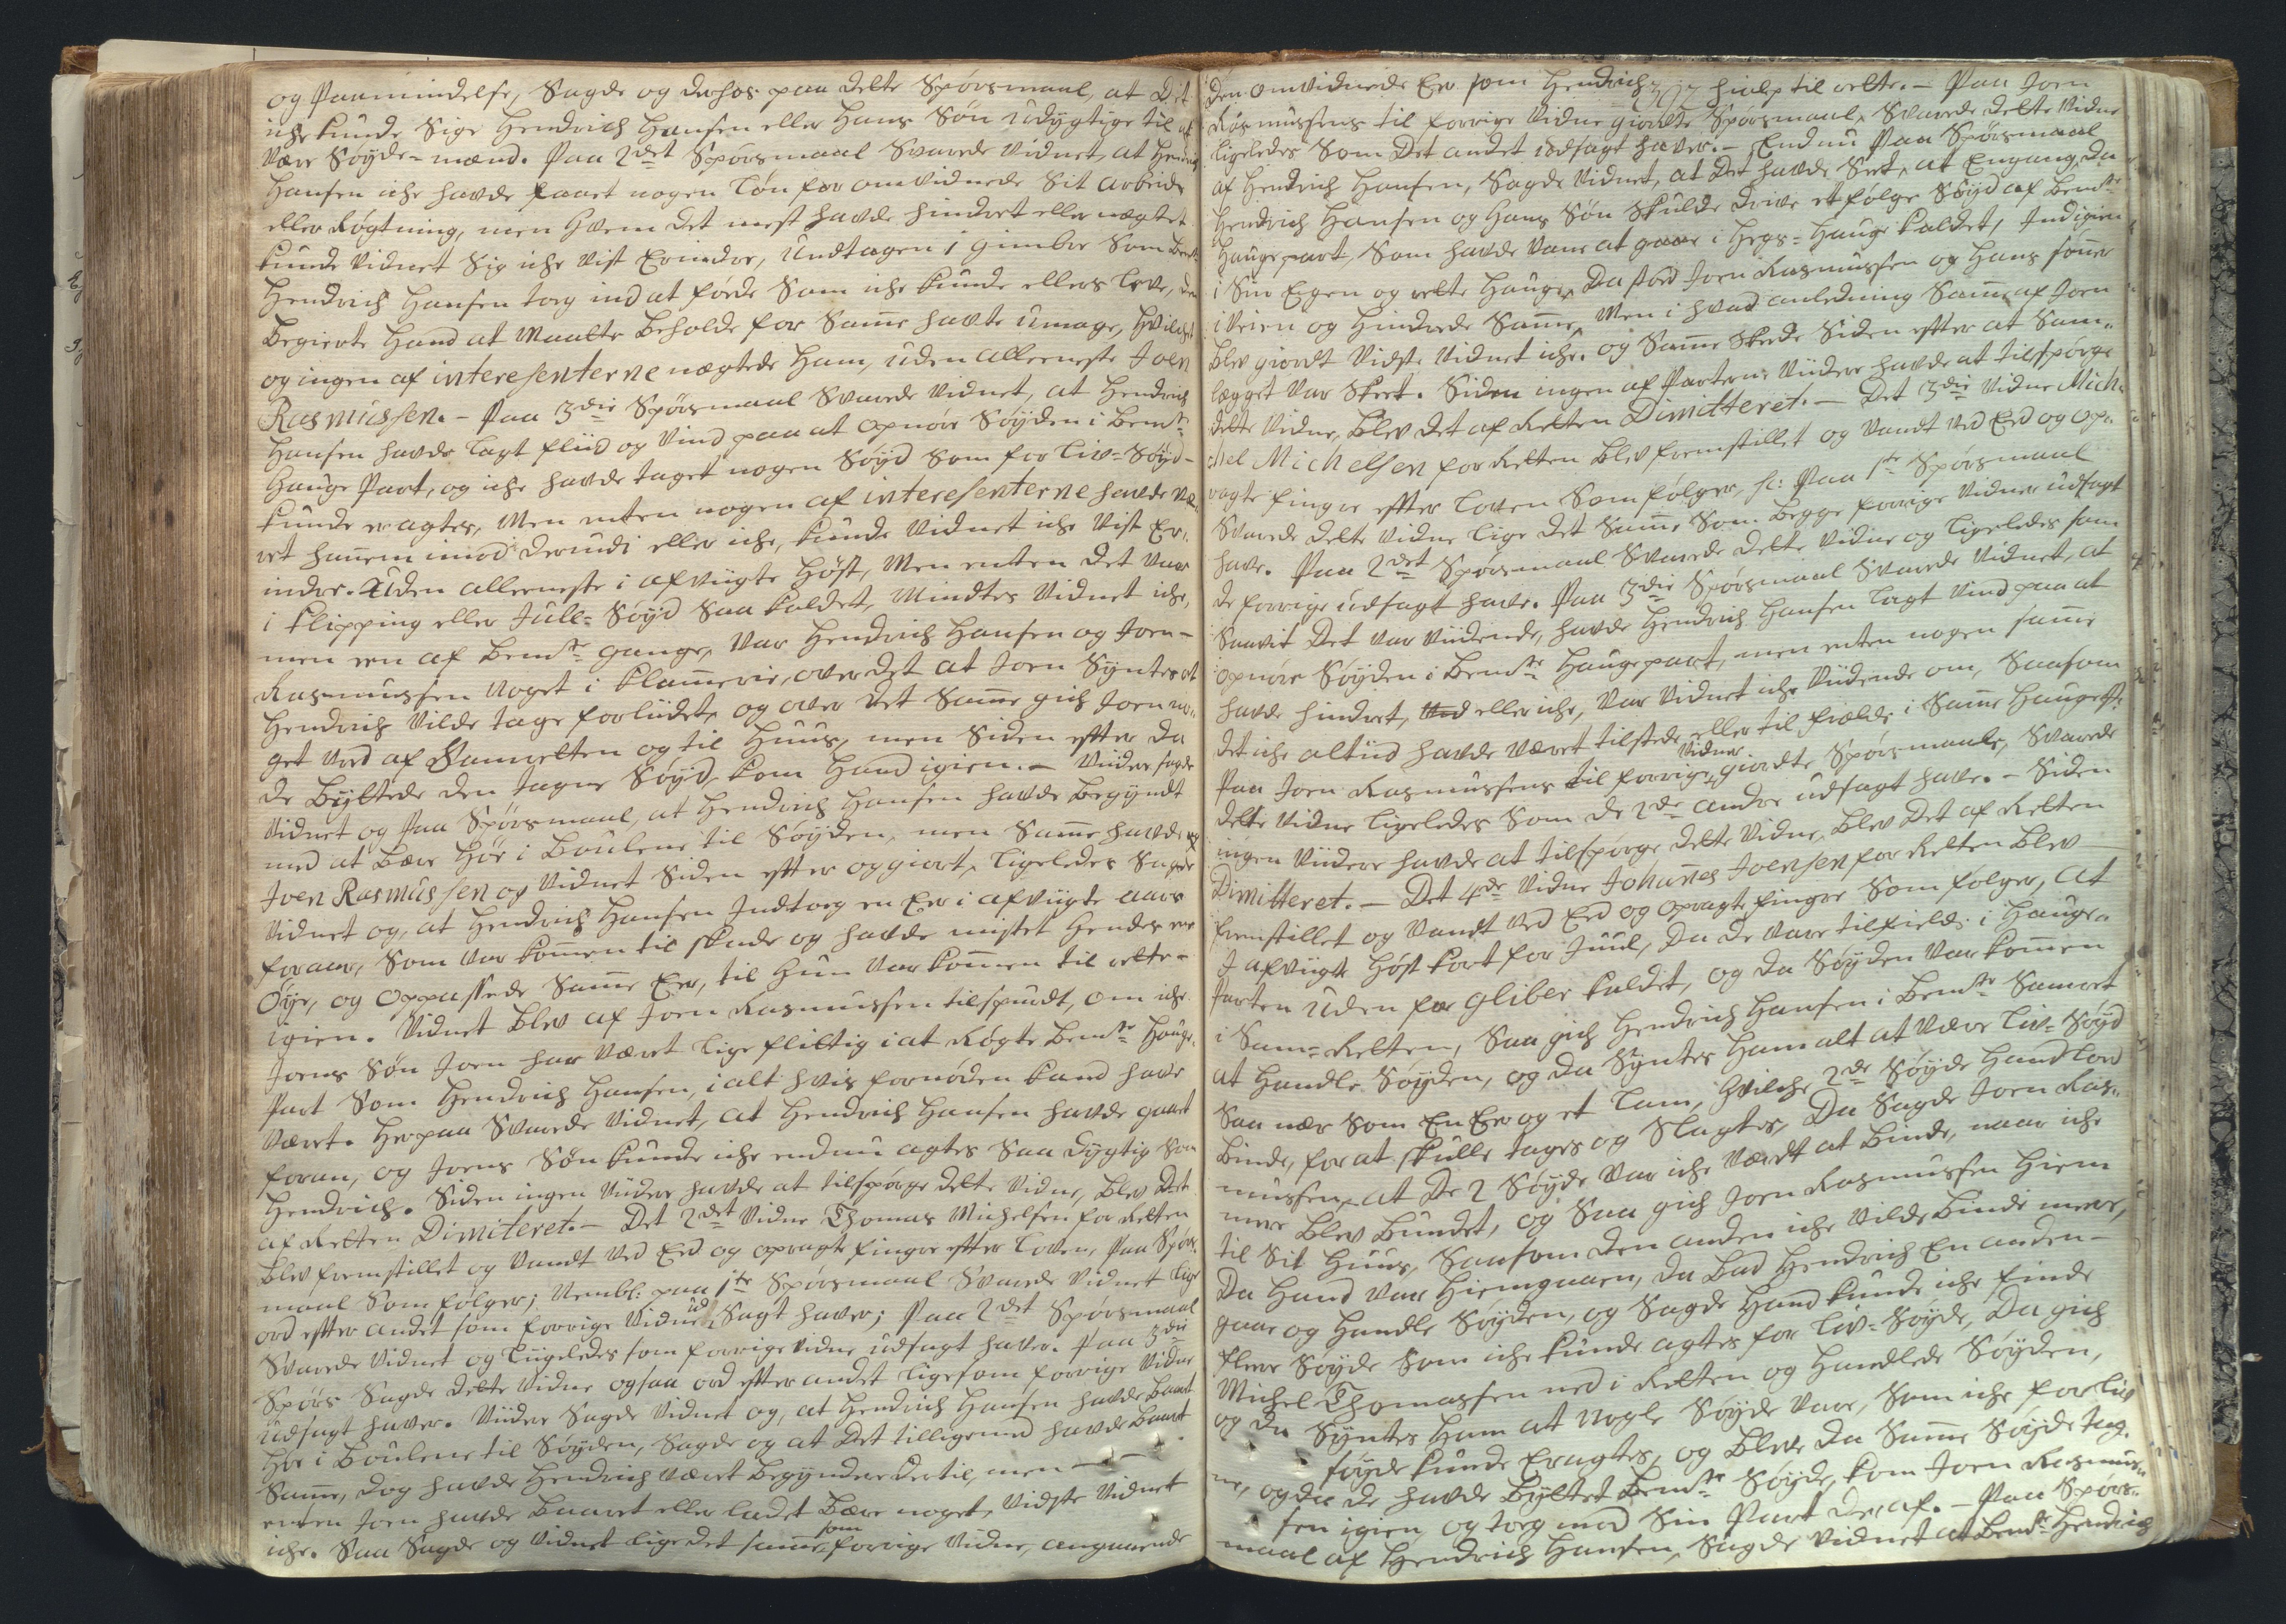 og Paamindelse, Sagde og derhos paa dette Spørsmaal, at Det
iche kunde Sige Hendrich Hansen eller Hans Søn udygtige til at
Være Søyde-mænd. Paa 2det Spørsmaal Svarede Vidnet, at Hendrich
Hansen iche havde faaet nogen Løn for omvidnede Sit Arbeide
eller Røgtning, men Hvem det mest havde hindret eller nægtet
kunde Vidnet Sig iche Vist Erindre, Undtagen 1 gimber Som bemte
Hendrich Hansen tog ind at føde Som iche kunde ellers leve, den
Begierte Hand at Maatte Beholde for Samme hafte umage, Hvilchet
og ingen af interesenterne nægtede Ham, uden alleeneste Joen
Rasmussen. - Paa 3die Spørsmaal Svarede Vidnet, at Hendrich
Hansen havde lagt fliid og Vind paa at opnøre Søyden i Bemte
Hauge Part, og iche havde taget nogen Søyd Som for Liv-Søyd-
kunde eragtes, Men enten nogen af interesenterne havde væ-
ret hannem imod derudi eller iche, kunde Vidnet iche Vist Er-
indre. Uden alleeneste i afvigte Høst, Men enten det Var
i klipping eller Jule-Søyd Saa kaldet, Mindtes Vidnet iche,
men een af Bemte gange, Var Hendrich Hansen og Joen-
Rasmussen Noget i klammerie, over det at Joen Syntes at
Hendrich Vilde tage forliidet, og over det Samme gich Joen no-
get Vred af Samretten og til Huus, men Siden efter da
de Byttede den tagne Søyd, kom Hand igien. - Viidere sagde
Vidnet og Paa Spørsmaal, at Hendrich Hansen havde Begyndt
med at Bære Høe i Boulene til Søyden, men Samme havde og
Joen Rasmussen og Vidnet Siden efter og giort, ligeledes Sagde
Vidnet og, at Hendrich Hansen Indtog en Eer i afviigte aars
foraar, Som var kommen til skade og havde mistet Hendes eene
Øye, og oppassede Samme Eer, til Hun Var kommen til rette-
igien. Vidnet Blev af Joen Rasmussen tilspundt, om iche
Joens Søn Joen har Været lige flittig i at Røgte Bemte Hauge-
Part Som Hendrich Hansen, i alt hvis fornøden kand have
Været. Herpaa Svarede Vidnet, at Hendrich Hansen havde gaaet
foran, og Joens Søn kunde iche endnu agtes Saa dygtig Som
Hendrich. Siden ingen Viidere havde at tilspørge dette Vidne, blev Det
af Retten Dimiteret. - Det 2det Vidne Thomas Michelsen for Retten
Blev fremstillet og Vandt Ved Eed og opragte fingre efter Loven, Paa Spørs-
maal Som følger; Nembl: paa 1te Spørsmaal Svarede Vidnet lige
ord efter andet som forrige Vidne ud Sagt haver; Paa 2det Spørsmaal
Svarede Vidnet og Liigeledes som forrige Vidne udsagt haver. Paa 3die
Spørs Sagde dette Vidne ogsaa ord efter andet ligesom forrige Vidne
udsagt haver. Viidere Sagde Vidnet og, at Hendrich Hansen havde Baaret
Høe i Boulene til Søyden, Sagde og at Det tilligemed havde Baaret
Samme, dog havde Hendrich været Begyndere dertil, men -
enten Joen havde Baaret eller ladet Bære noget, Vidste Vidnet
iche. Saa Sagde og Vidnet lige det samme som forrige Vidne, angaaende
den omvidnede Eer som Hendrich hialp til rette. - Paa Joen
Rasmussens til forrige Vidne giordte Spørsmaal, Svarede dette Vidne
ligeledes Som Det andet udsagt haver. - End nu Paa Spørsmaal
af Hendrich Hansen, Sagde Vidnet, at Det havde Seet, at Engang, da
Hendrich Hansen og Hans Søn Skulde drive et følge Søyd af Bemte
Haugepart, Som havde Vane at gaae i Hegs-Hauge kaldet, Indigien
i Sin Egen og rette Hauge, Da stod Joen Rasmussen og Hans sønner
i Veien og Hindrede Samme, Men i hvad anledning Samme af Joen
blev giordt Vidste Vidnet iche. og Samme Skede Siden efter at Sam-
lægget Var Skeet. Siden ingen af Parterne Viidere havde at tilspørge
dette Vidne, blev det af Retten Dimitteret. - Det 3die Vidne Mich-
chel Michelsen for Retten Blev fremstillet og Vandt Ved Eed og op-
ragte fingre efter Loven Som følger, sc: Paa 1te Spørsmaal
Svarede dette Vidne lige det Samme Som Begge forrige Vidner udsagt
have. Paa 2det Spørsmaal Svarede dette Vidne og ligeledes som
de forrige udsagt have. Paa 3die Spørsmaal Svarede Vidnet, at
Saavit Det Var Viidende, havde Hendrich Hansen lagt Vind paa at
opnøre Søyden i Bemte Haugepart, men enten nogen samme
havde hindret, eller iche, Var Vidnet iche Viidende om, Saasom
det iche altiid havde Været tilstede eller til fields i Samme Hauge.
Paa Joen Rasmussens til forrige Vidner giordte Spørsmaale, Svarede
dette Vidne ligeledes Som de 2de andre udsagt have. - Siden
ingen Viidere havde at tilspørge dette Vidne, Blev Det af Retten
Dimitteret. - Det 4de Vidne Johannes Joensen for Retten Blev
fremstillet og Vandt Ved Eed og opragte fingre Som følger, At
I afviigte Høst kort for Juul, Da de Vare tilfields i Hauge-
Parten uden for Gliber kaldet, og da Søyden Var kommen
i Sam-Retten, Saa gich Hendrich Hansen i Bemte Samret
at Handle Søyden, og da Syntes Ham alt at Være Liv-Søyd
Saa nær Som En Eer og et Lam, Hvilche 2de Søyde Hand lod
binde, for at skulle tages og Slagtes, Da Sagde Joen Ras-
mussen, at De 2 Søyde Var iche Værdt at Binde, naar iche
mere blev bundet, og Saa gich Joen Rasmussen Hiem
til Sit Huus, Saasom den anden iche Vilde Binde meere,
Da Hand Var Hiemgaaen, da bad Hendrich En anden-
gaae og Handle Søyden, og Sagde Hand kunde iche finde
fleere Søyde Som iche kunde agtes for Liv-Søyde, Da gich
Michel Thomassen ned i Retten og Handlede Søyden,
og da Syntes Ham at Nogle Søyde Vare, Som iche for Liv
søyde kunde Eragtes, og blev da Samme Søyde tag-
ne, og da de havde Byttet Bemte Søyde, kom Joen Rasmus-
sen igien og tog mod Sin Part deraf. - Paa Spørs-
maal af Hendrich Hansen, Sagde Vidnet at Bemte Hendrich